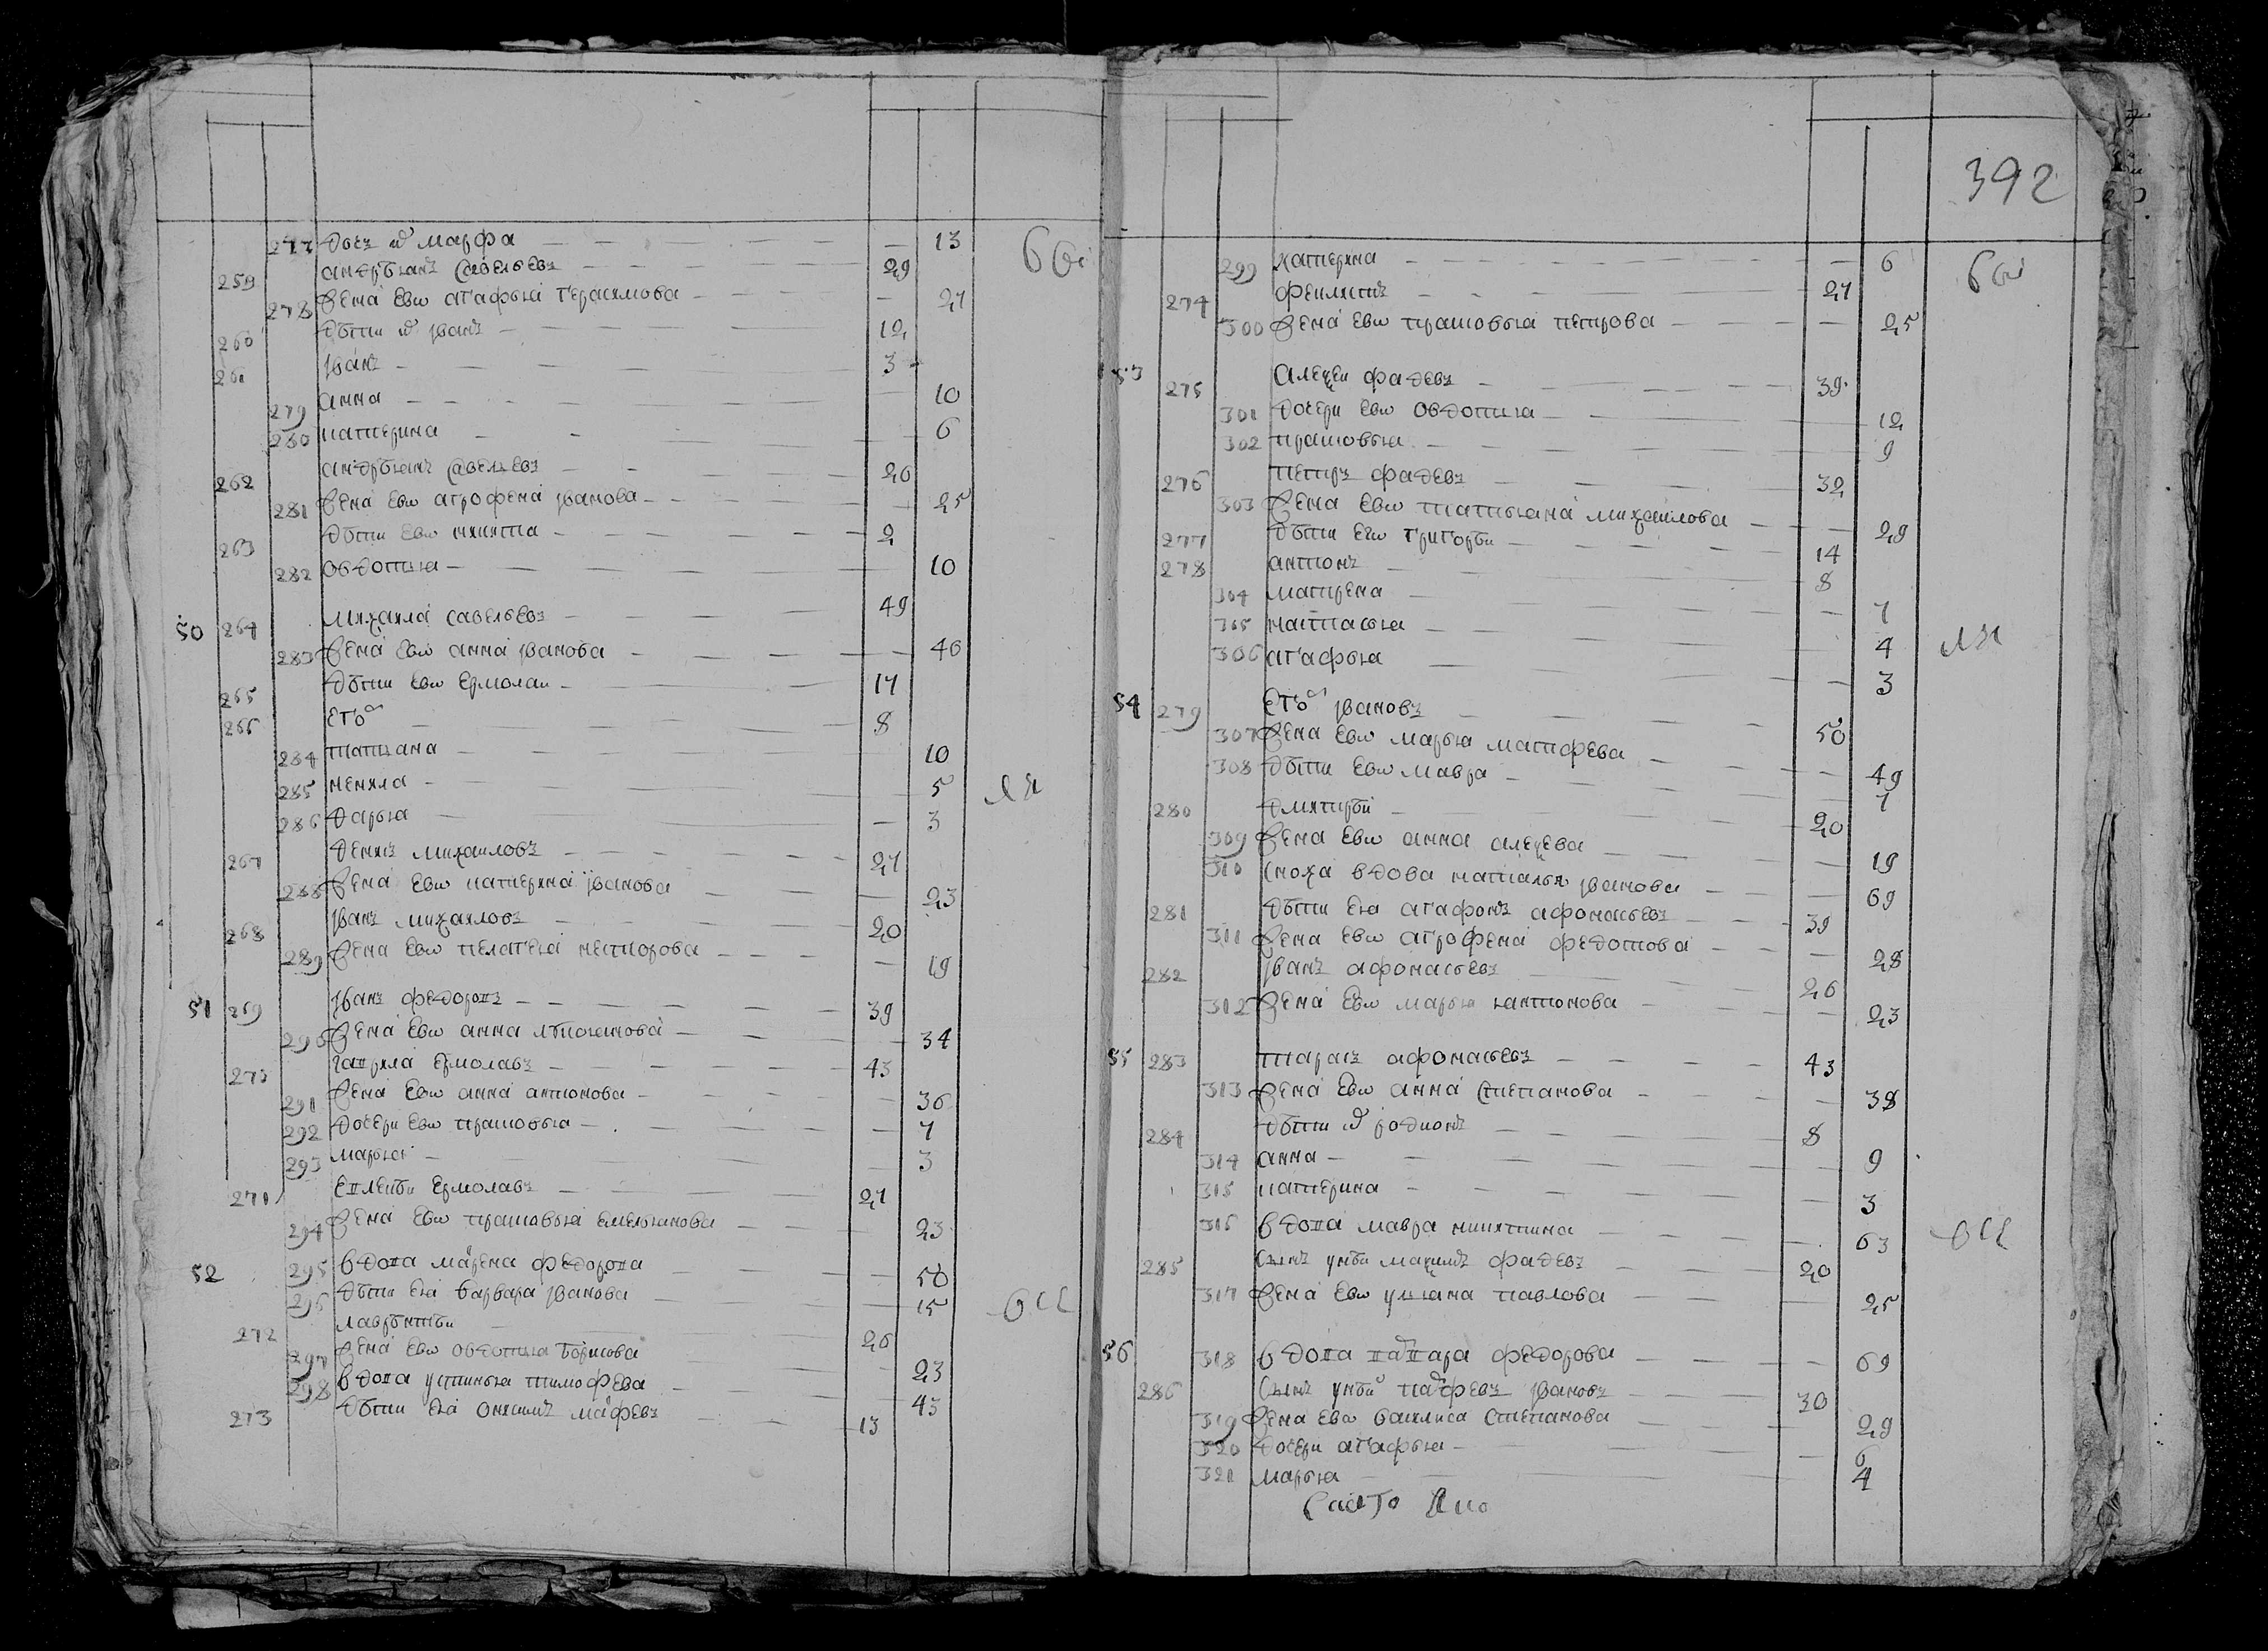 277 дочь их марфа — 13 бы
259 андрѣянъ савельевъ 29
278 жена ево агафья герасимова — 27
260 дѣти их іванъ 12
261 іванъ 3
279 анна — 10
280 катерина — 6
262 андрѣянъ савельевъ 26
281 жена ево агрофена іванова — 25
263 дѣти ево никита 2
282 овдотья — 10
50 264 михаила савельевъ 49
283 жена ево анна іванова — 46
265 дѣти ево ермолаи 17
266 егоръ 8
284 татьяна — 10
285 ненила — 5 ли
286 дарья — 3
267 денисъ михаиловъ 27
288 жена ево катерина іванова — 23
268 іванъ михаиловъ 20
289 жена ево пелагея несторова — 19
51 269 іванъ федоровъ 39
290 жена ево анна лукоянова — 34
270 гаврила ермолавъ 43
291 жена ево анна антонова — 36
292 дочери ево прасковья — 7
293 марья — 3
271 евлентеи ермолавъ 27
294 жена ево прасковья емельянова — 23
52 295 вдова матрена федорова — 50
296 дѣти ея варвара іванова — 15 всс
272 лаврентѣи 26
297 жена ево овдотья борисова — 23
298 вдова устинья тимофева — 43
273 дѣти ея онисимъ матфевъ 13
392
299 катерина — 6 бы
274 феклистъ 27
300 жена ево прасковья петрова — 25
53 275 алексеи фадевъ 39
301 дочери ево овдотья 12
302 прасковья 9
276 петръ фадевъ 32
303 жена ево татьяна михаилова — 29
277 дѣти его григорѣи 14
278 антонъ 8
304 матрена — 7
305 настасья 4 ли
306 агафья — 3
54 279 егоръ івановъ 50
307 жена ево марья матфева — 49
308 дѣти ево мавра — 7
280 дмитрѣи 20
309 жена ево анна алексева — 19
310 сноха вдова наталья іванова — 69
281 дѣти ея агафонъ афонасьевъ 39
311 жена ево агрофена федотова — 28
282 іванъ афонасьевъ 26
312 жена ево марья антонова — 23
55 283 тарасъ афонасьевъ 43
313 жена ево анна степанова — 38
284 дѣти их родионъ 8
314 анна — 9
315 катерина — 3
316 вдова мавра никитина — 63 всс
285 сынъ у неи максимъ фадевъ 20
317 жена ево ульяна павлова — 25
56 318 вдова варвара федорова — 69
286 сынъ у неи парфевъ івановъ 30
319 жена ево василиса степанова 29
320 дочери агафья — 6
321 марья 4